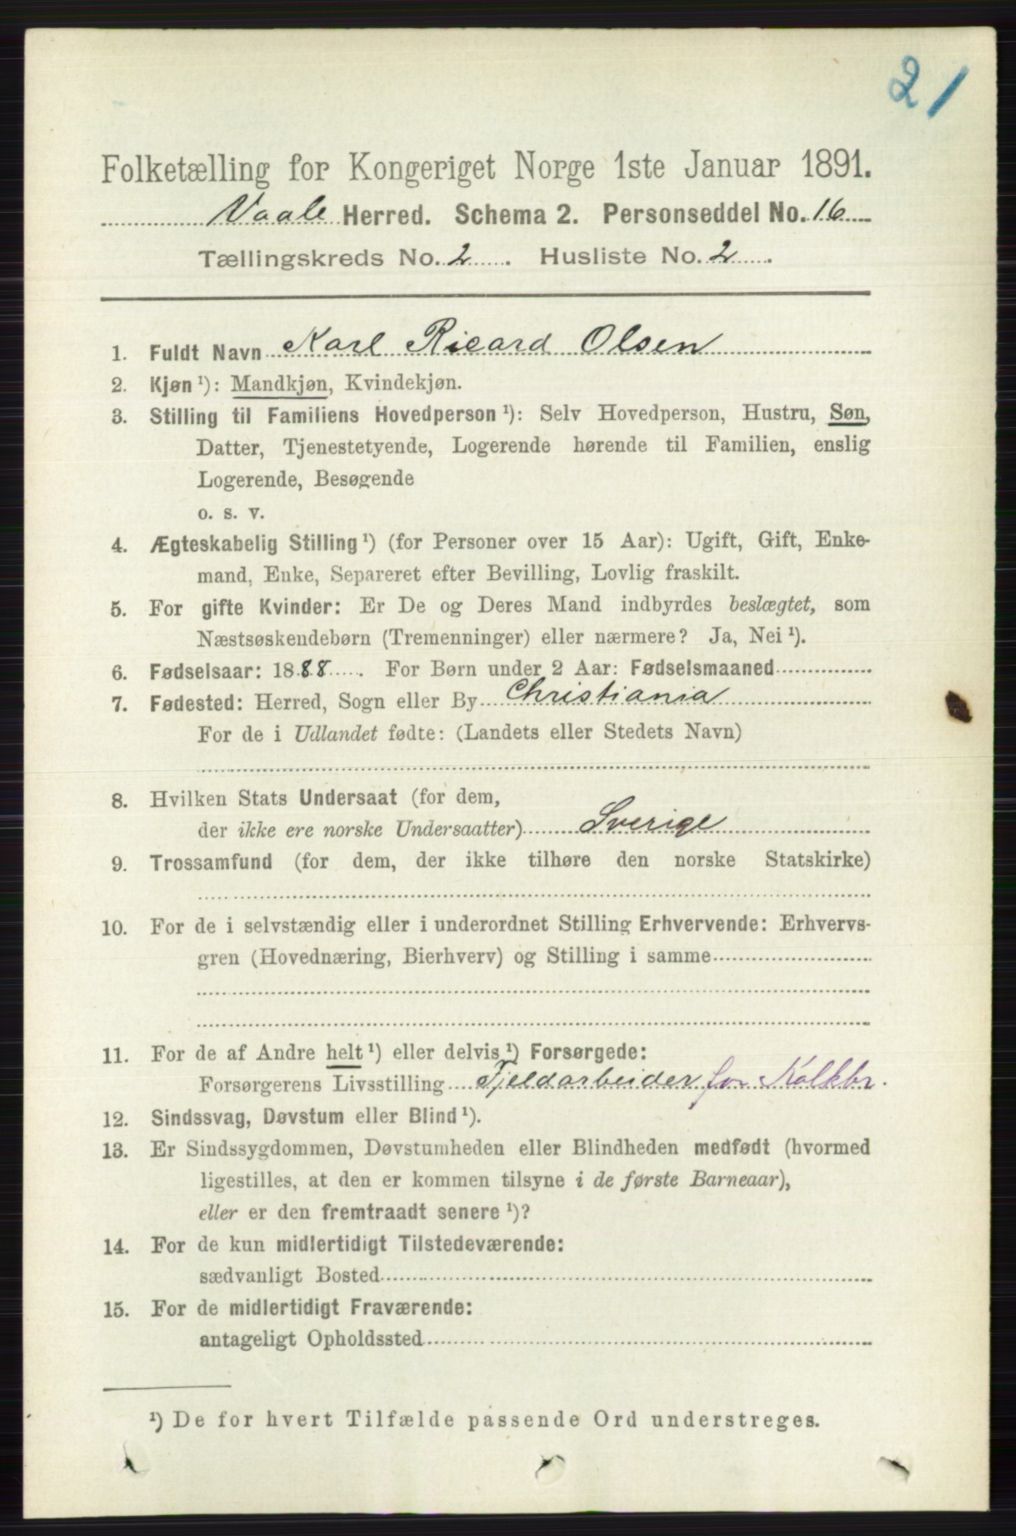 21
Folketælling for Kongeriget Norge 1ste Januar 1891.
Vaale Herred. Schema 2. Personseddel No. 16
Tællingskreds No. 2. Husliste No. 2.
1. Fuldt Navn Karl Ricard Olsen
2. Kjøn ¹): Mandkjøn, Kvindekjøn.
3. Stilling til Familiens Hovedperson ¹): Selv Hovedperson, Hustru, Søn,
Datter, Tjenestetyende, Logerende hørende til Familien, enslig
Logerende, Besøgende
o. s. v.
4. Ægteskabelig Stilling ¹) (for Personer over 15 Aar): Ugift, Gift, Enke-
mand, Enke, Separeret efter Bevilling, Lovlig fraskilt.
5. For gifte Kvinder: Er De og Deres Mand indbyrdes beslægtet, som
Næstsøskendebørn (Tremenninger) eller nærmere? Ja, Nei ¹).
6. Fødselsaar: 1888. For Børn under 2 Aar: Fødselsmaaned
7. Fødested: Herred, Sogn eller By Christiania
For de i Udlandet fødte: (Landets eller Stedets Navn)
8. Hvilken Stats Undersaat (for dem,
der ikke ere norske Undersaatter) Sverige
9. Trossamfund (for dem, der ikke tilhøre den norske Statskirke)
10. For de i selvstændig eller i underordnet Stilling Erhvervende: Erhvervs-
gren (Hovednæring, Bierhverv) og Stilling i samme
11. For de af Andre helt ¹) eller delvis ¹) Forsørgede:
Forsørgerens Livsstilling Fjeldarbeider for Kalkbr.
12. Sindssvag, Døvstum eller Blind ¹).
13. Er Sindssygdommen, Døvstumheden eller Blindheden medfødt (hvormed
ligestilles, at den er kommen tilsyne i de første Barneaar),
eller er den fremtraadt senere ¹)?
14. For de kun midlertidigt Tilstedeværende:
sædvanligt Bosted
15. For de midlertidigt Fraværende:
antageligt Opholdssted
¹) De for hvert Tilfælde passende Ord understreges.